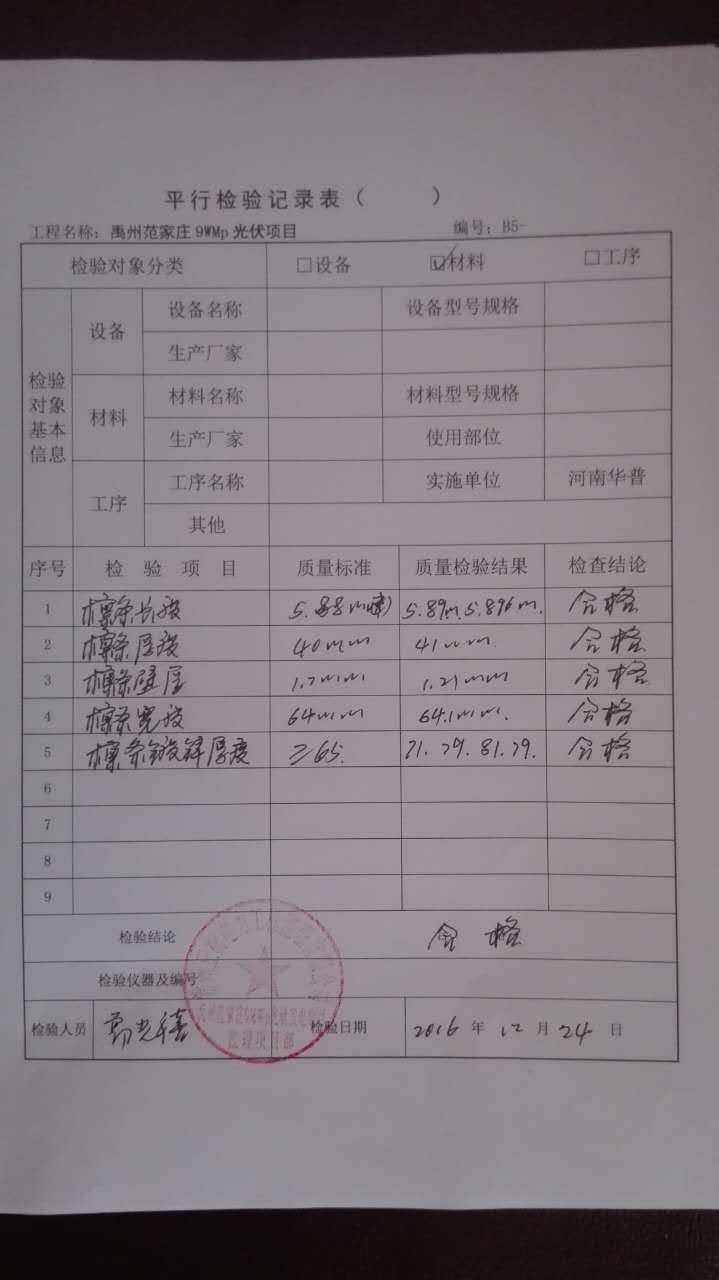 平行检验记录表（ ）
工程名称：禹州范家庄9WMp光伏项目 编号：B5-
检验对象分类 □设备 ☑材料 □工序
检验对象基本信息 设备 设备名称 设备型号规格
生产厂家
材料 材料名称 材料型号规格
生产厂家 使用部位
工序 工序名称 实施单位 河南华普
其他
序号 检验项目 质量标准 质量检验结果 检查结论
1 檩条长度 5.88m 5.89m.5.896m. 合格
2 檩条厚度 40mm 41mm. 合格
3 檩条壁厚 1.2mm 1.21mm 合格
4 檩条宽度 64mm 64.1mm. 合格
5 檩条镀锌厚度 ≥65. 71.79.81.79. 合格
6
7
8
9
检验结论 合格
检验仪器及编号
检验人员 检验日期 2016 年 12 月 24 日
监理项目部